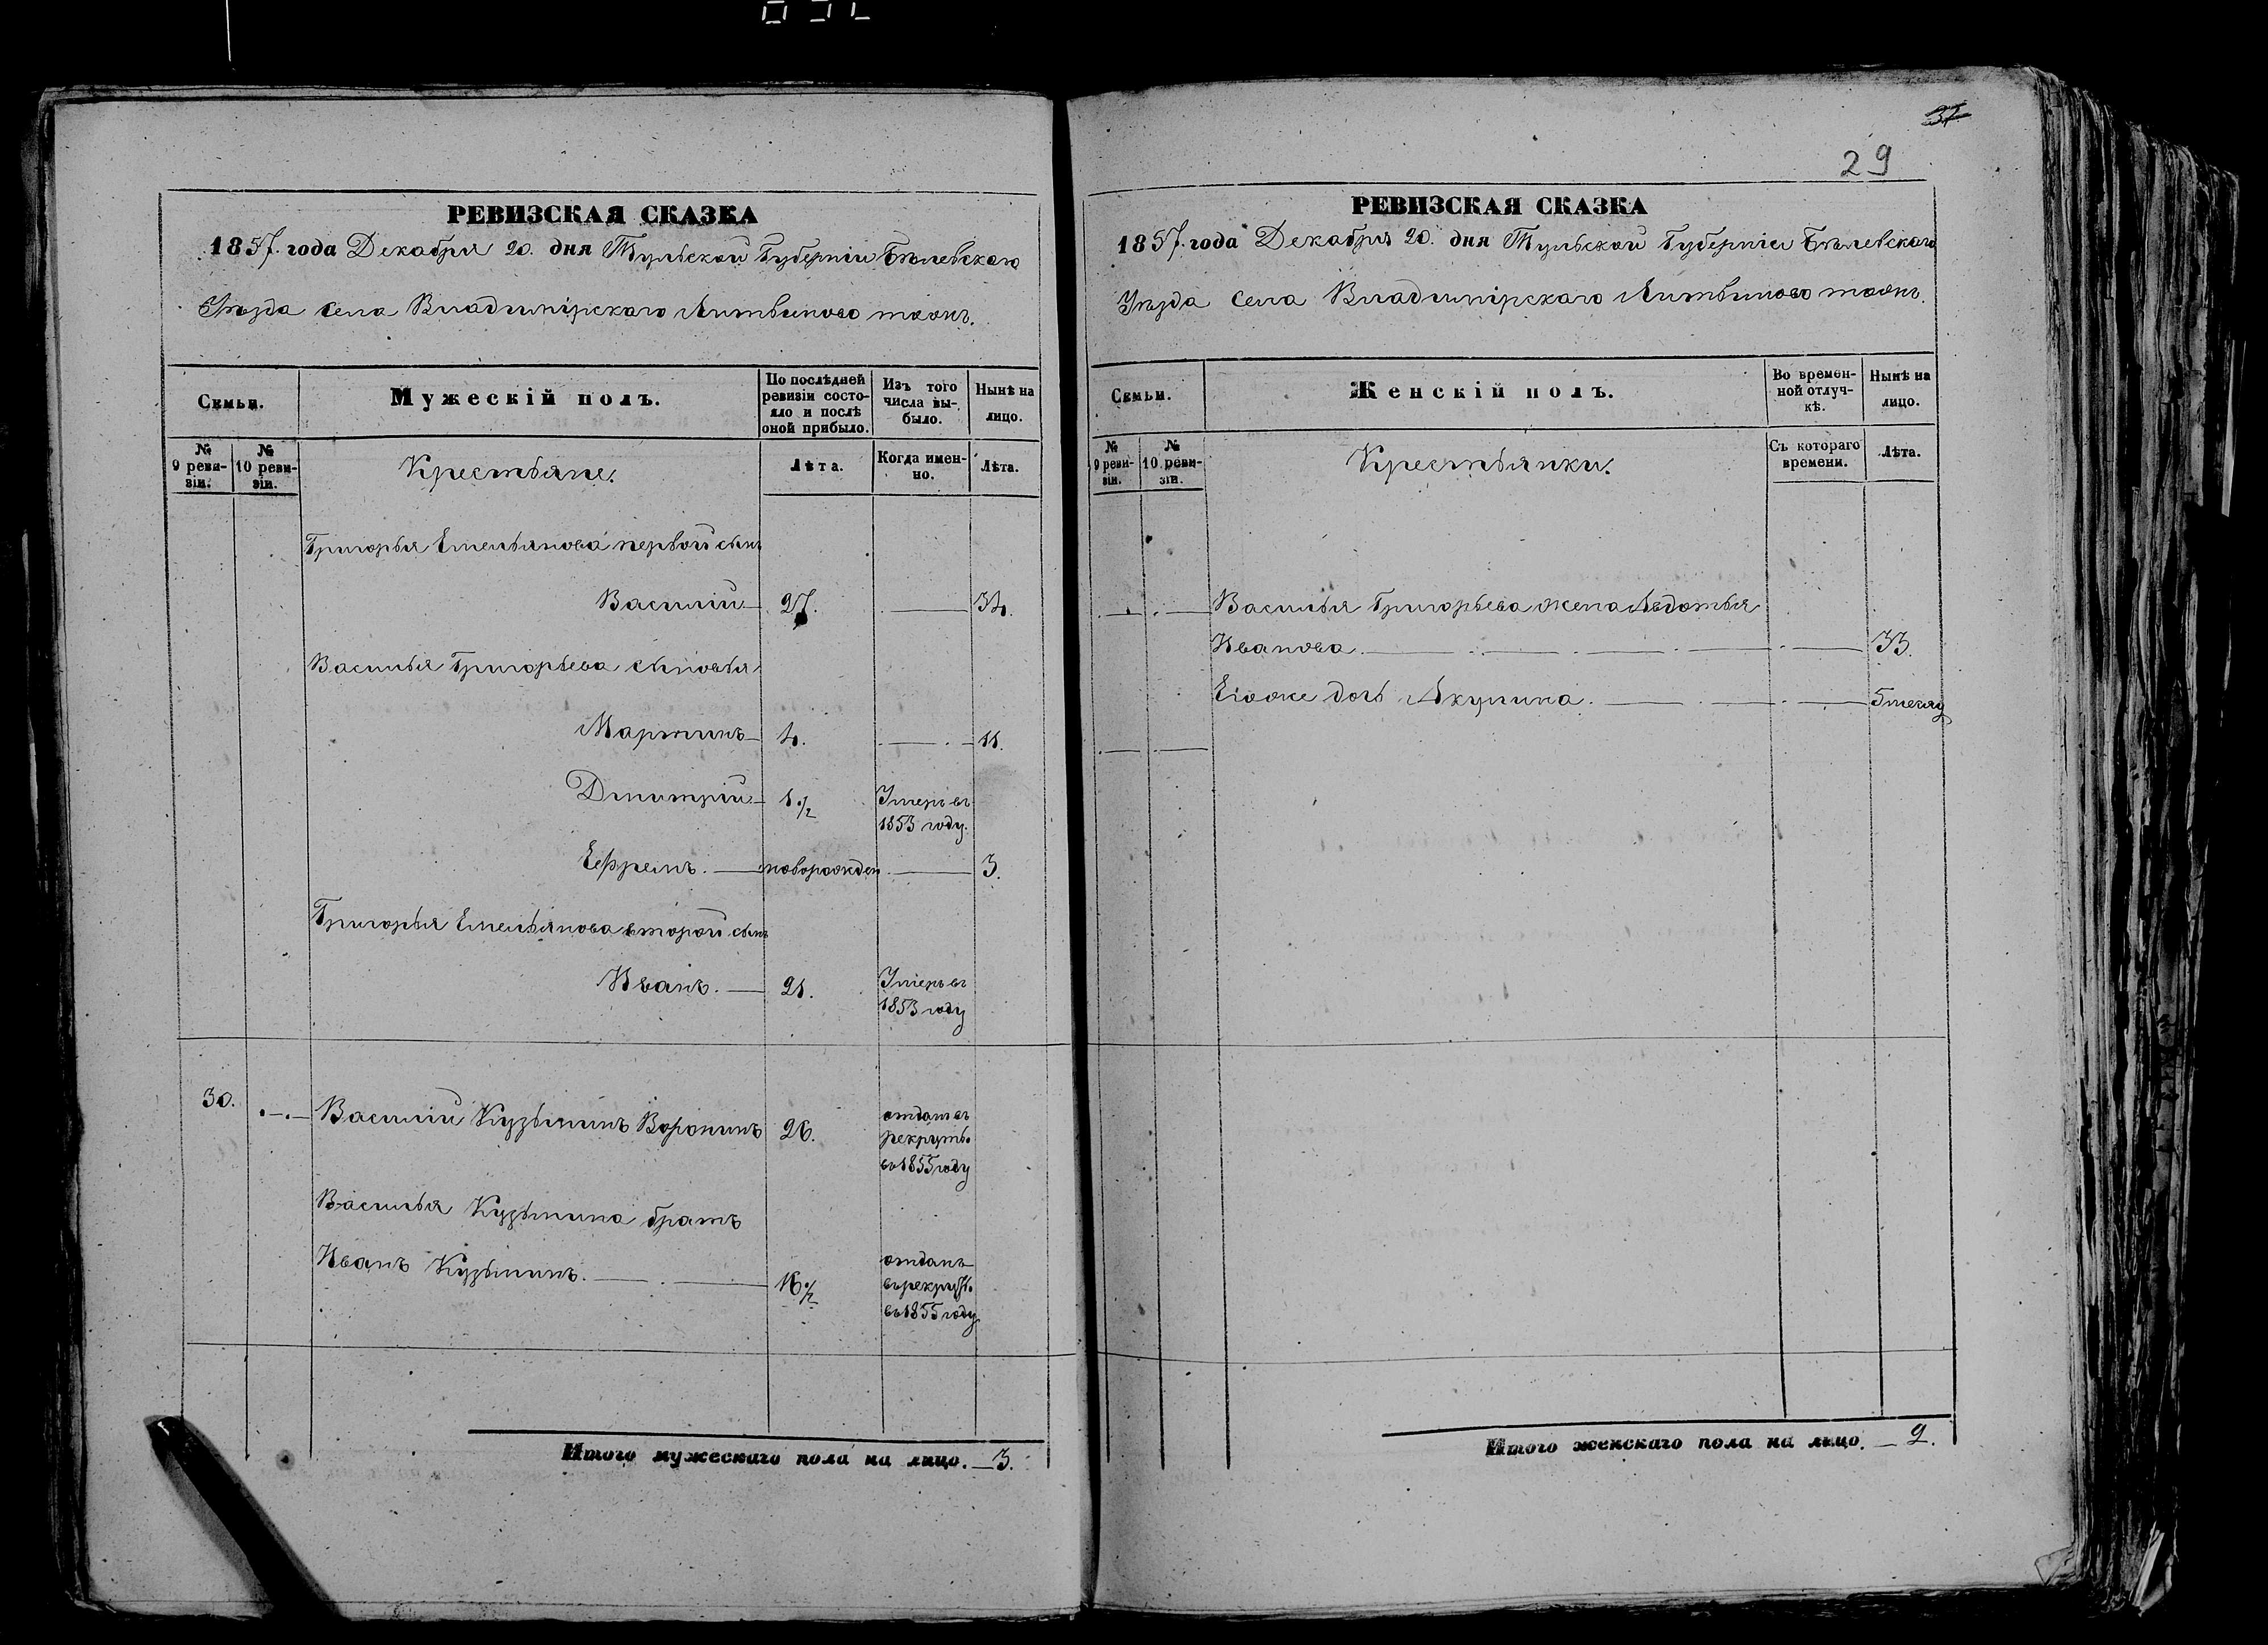 37
29
РЕВИЗСКАЯ СКАЗКА
1857. года Декабря 20. дня Тульской Губерніи Бѣлевскаго
Уѣзда Села Владимірскаго Литвиново тожъ.
Семьи.
Мужескій полъ.
По послѣдней ревизіи состояло и послѣ оной прибыло.
Изъ того числа выбыло.
Нынѣ на лицо.
№ 9 ревизіи.
№ 10 ревизіи.
Крестьяне.
Лѣта.
Когда именно.
Лѣта.
Григорья Емельянова первой сынъ
Василій 27. 34.
Василья Григорьева сыновья
Мартинъ 4. 11.
Дмитрій 1 1/2 Умеръ въ
1853 году.
Ефремъ. новорожден 3.
Григорья Емельянова второй сынъ
Иванъ. 21. Умеръ въ
1853 году
30. Василій Кузьминъ Воронинъ 26. отданъ въ
рекруты
въ 1855 году
Василья Кузьмина братъ
Иванъ Кузьминъ. 16 1/2 отданъ
въ рекруты
въ 1855 году
Итого мужескаго пола на лицо. 3.
РЕВИЗСКАЯ СКАЗКА
1857. года Декабря 20. дня Тульской Губерніи Бѣлевскаго
Уѣзда Села Владимірскаго Литвиново тожъ.
Семьи.
Женскій полъ.
Во временной отлучкѣ.
Нынѣ на лицо.
№ 9 ревизіи.
№ 10 ревизіи.
Крестьянки.
Съ котораго времени.
Лѣта.
Василья Григорьева жена Авдотья
Иванова 33.
Егоже дочь Акулина. 5 месяц
Итого женскаго пола на лицо. 2.